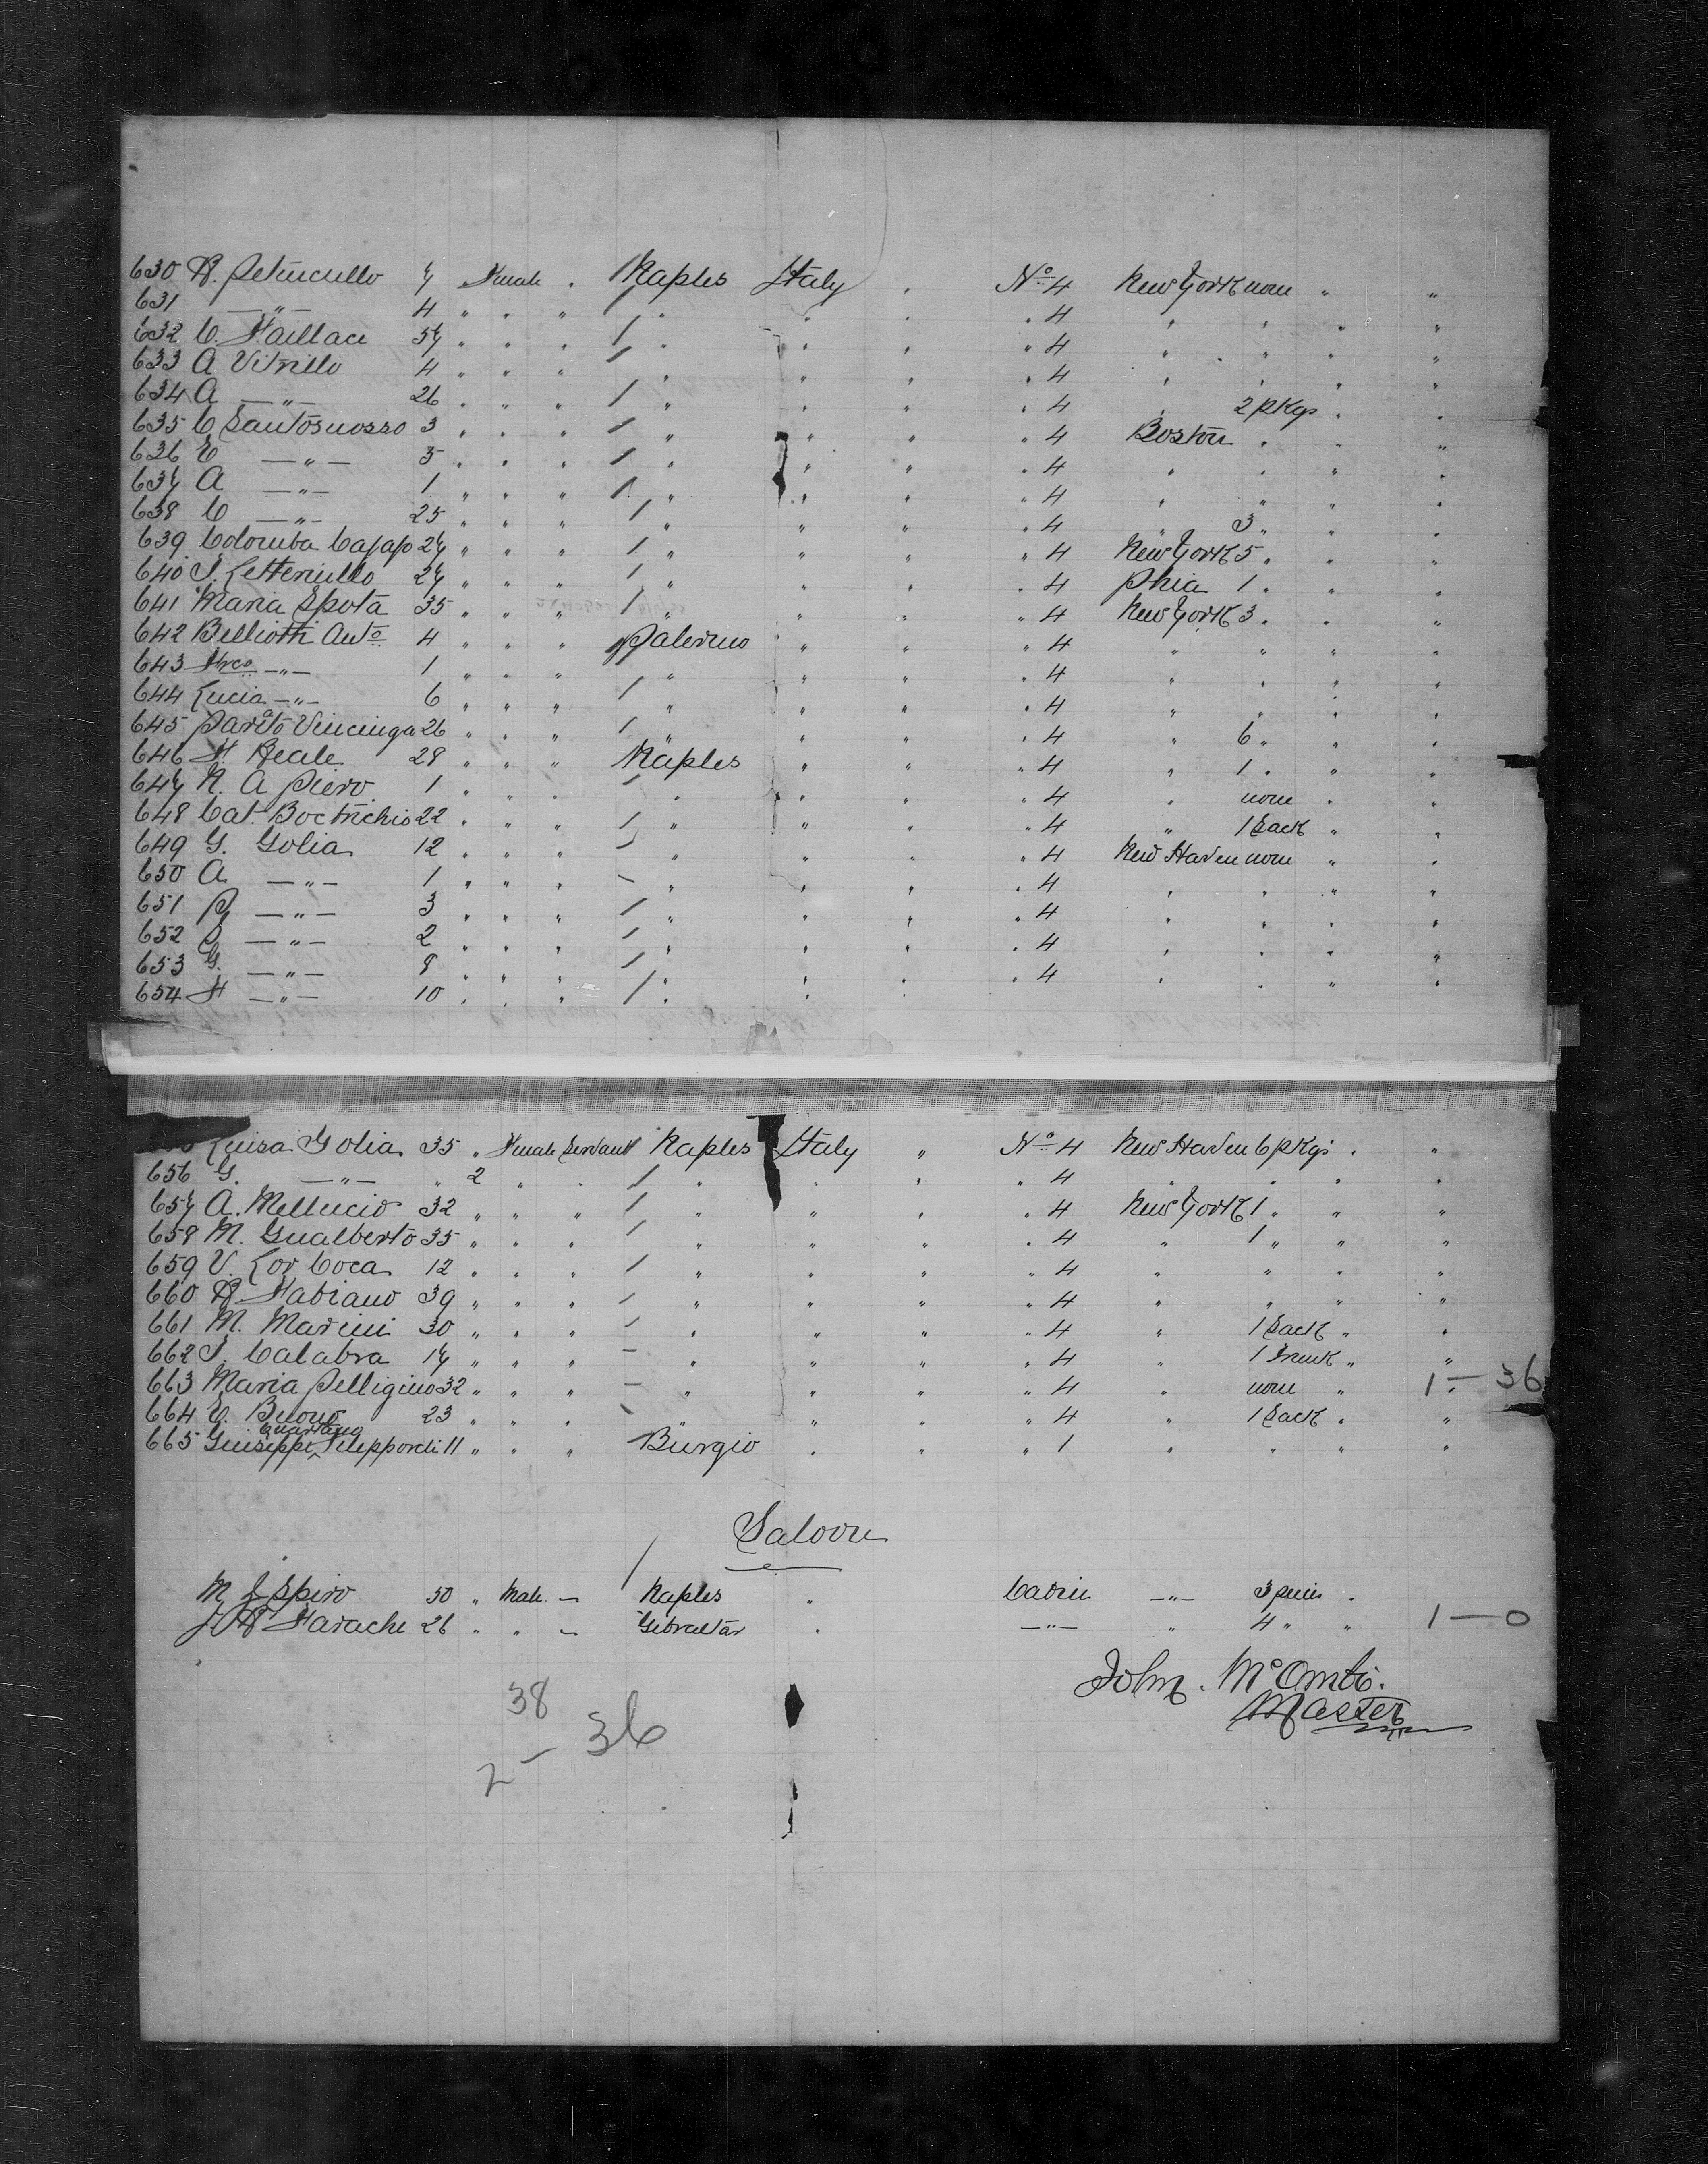 630 R. Petinicullo 7 Female " Naples Italy " No 4 New York none " "
631 —"— 4 " " " / " " " " 4 " " " "
632 C. Faillace 37 " " " / " " " " 4 " " " "
633 A Vitrillo 4 " " " / " " " " 4 " " " "
634 A —"— 26 " " " / " " " " 4 " 2 pKgs " "
635 C Santosuosso 3 " " " / " " " " 4 Boston " " "
636 E —"— 5 " " " / " " " " 4 " " " "
637 A —"— 1 " " " / " " " " 4 " " " "
638 C —"— 25 " " " / " " " " 4 " 3 " " "
639 Colomba Cajapo 27 " " " / " " " " 4 New York 5 " " "
640 S. Letteriello 27 " " " / " " " " 4 Phia 1 " " "
641 Maria Spota 35 " " " / " " " " 4 New York 3 " " "
642 Belliotti Anto 4 " " " Palermo " " " 4 " " " "
643 Frco —"— 1 " " " " " " " 4 " " " "
644 Lucia —"— 6 " " " / " " " " 4 " " " "
645 Parito Vincinga 26 " " " / " " " " 4 " 6 " " "
646 F Reale 28 " " " Naples " " " 4 " 1 " " "
647 N. A Piero 1 " " " / " " " " 4 " none " "
648 Cat. Boctrichio 22 " " " / " " " " 4 " 1 Sack " "
649 G. Golia 12 " " " / " " " " 4 New Haven none " "
650 A —"— 1 " " " – " " " " 4 " " " "
651 P —"— 3 " " " / " " " " 4 " " " "
652 P —"— 2 " " " / " " " " 4 " " " "
653 G. —"— 8 " " " / " " " " 4 " " " "
654 F —"— 10 " " " / " " " " " " "
Luisa Golia 35 " Female Servant Naples Italy " No 4 New Haven 6 pKgs " "
656 G. —"— " 2 " " / " " " " 4 " " " "
657 A. Mellucio 32 " " " / " " " " 4 New York 1 " " "
658 M. Gualberto 35 " " " / " " " " 4 " 1 " " "
659 V. Lor Coca 12 " " " / " " " " 4 " " " "
660 R Fabiano 39 " " " / " " " " 4 " " " "
661 M. Marini 30 " " " / " " " " 4 " 1 Sack " "
662 S. Calabra 17 " " " – " " " " 4 " 1 Trunk " "
663 Maria Pelligino 32 " " " – " " " " 4 " none " 1 – 36
664 E. Buono 23 " " " – " " " 4 " 1 Sack " "
Quartana
665 Guiseppe Fileppordi 11 " " " Burgio " " " 1 " " " "
Saloon
M J Spiro 30 " Male – / Naples " Cabin —"— 3 pieces "
J R Farache 26 " " – Gibraltar " —"— " 4 " " 1 — 0
John McOmbi.
Master
38
2 – 36